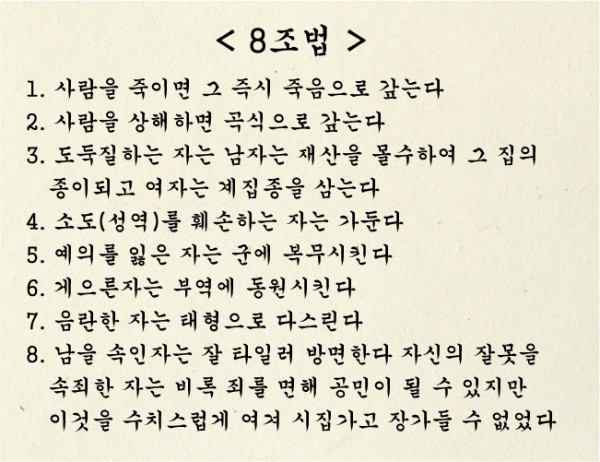 < 8조법 >
1. 사람을 죽이면 그 즉시 죽음으로 갚는다
2. 사람을 상해하면 곡식으로 갚는다
3. 도둑질하는 자는 남자는 재산을 몰수하여 그 집의
종이되고 여자는 계집종을 삼는다
4. 소도(성역)를 훼손하는 자는 가둔다
5. 예의를 잃은 자는 군에 복무시킨다
6. 게으른자는 부역에 동원시킨다
7. 음란한 자는 태형으로 다스린다
8. 남을 속인자는 잘 타일러 방면한다 자신의 잘못을
속죄한 자는 비록 죄를 면해 공민이 될 수 있지만
이것을 수치스럽게 여겨 시집가고 장가들 수 없었다